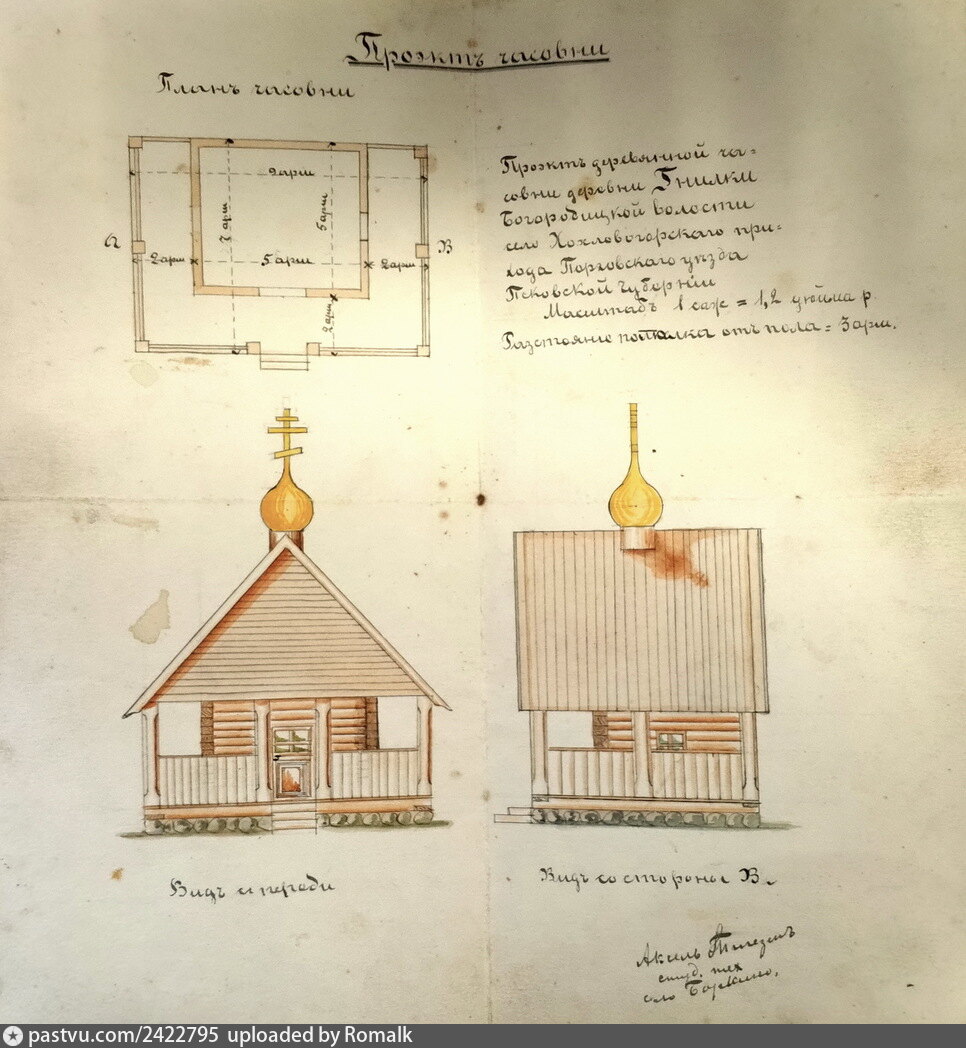 Проэктъ часовни
Планъ часовни
9 арш
7 арш
5 арш
2 арш
5 арш
2 арш
2 арш
В
Проэктъ деревянной ча=
совни деревни Гнилки
Богородицкой волости
село Хохловогорскаго при=
хода Порховскаго уѣзда
Псковской губорніи
Масштабъ 1 саж = 1,2 дюйма р.
Разстояніе потолка отъ пола = 3 арш.
Видъ спероди
Видъ со стороны В.
Аксель
студ. тех
село
pastvu.com/2422795 uploaded by Romalk